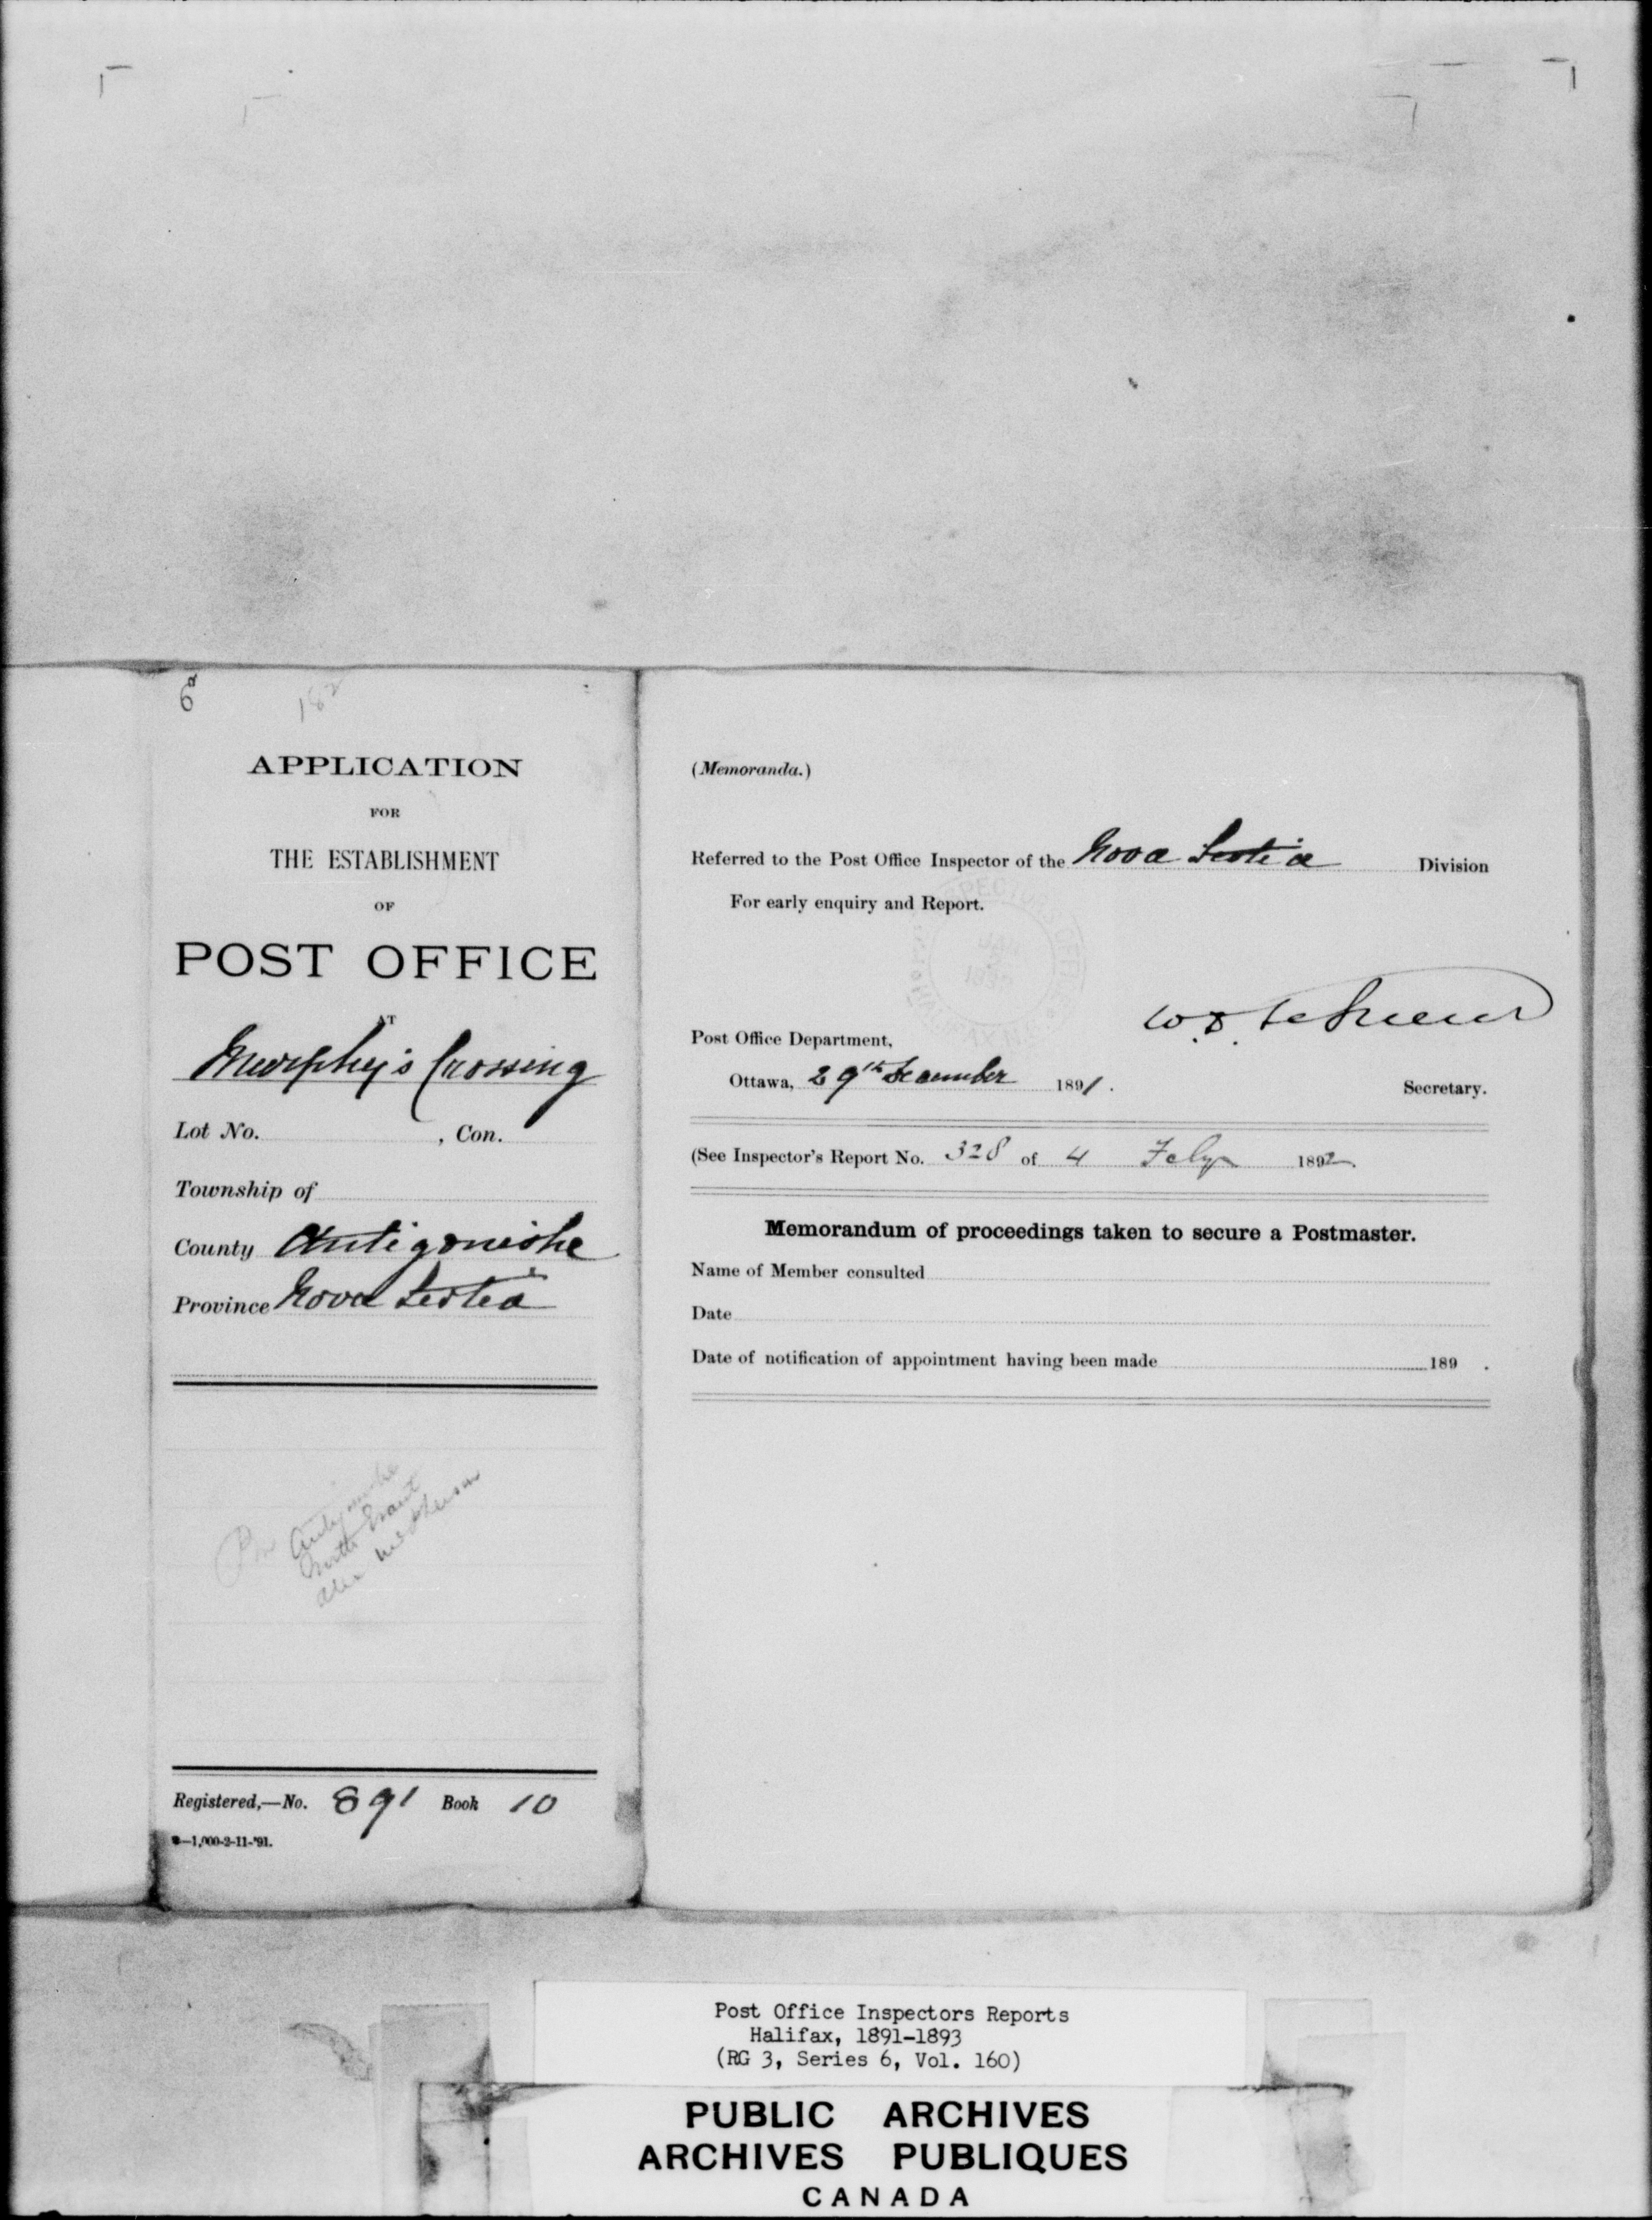 6a
182
APPLICATION
FOR
THE ESTABLISHMENT
OF
POST OFFICE
AT
Murphy's Crossing
Lot No. , Con.
Township of
County Antigonishe
Province Nova Scotia
Antigonishe
Grant
Alex McPherson
Registered,—No. 891 Book 10
—1,000-2-11-'91.
(Memoranda.)
Referred to the Post Office Inspector of the Nova Scotia Division
For early enquiry and Report.
Post Office Department,
Ottawa, 29th December 1891.
Secretary.
(See Inspector's Report No. 328 of 4 Feby 1892.
Memorandum of proceedings taken to secure a Postmaster.
Name of Member consulted
Date
Date of notification of appointment having been made 189 .
Post Office Inspectors Reports
Halifax, 1891-1893
(RG 3, Series 6, Vol. 160)
PUBLIC ARCHIVES
ARCHIVES PUBLIQUES
CANADA